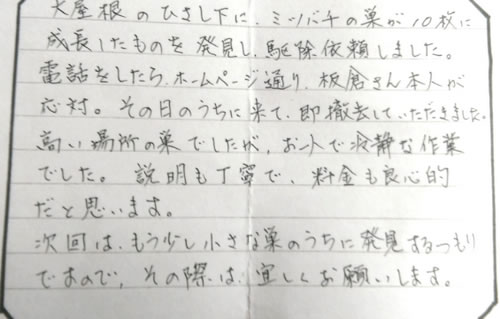 大屋根のひさし下に、ミツバチの巣が10枚に
成長したものを発見し、駆除依頼しました。
電話をしたら、ホームページ通り、板倉さん本人が
応対。その日のうちに来て、即撤去していただきました。
高い場所の巣でしたが、お一人で冷静な作業
でした。説明も丁寧で、料金も良心的
だと思います。
次回は、もう少し小さな巣のうちに発見するつもり
ですので、その際は、宜しくお願いします。